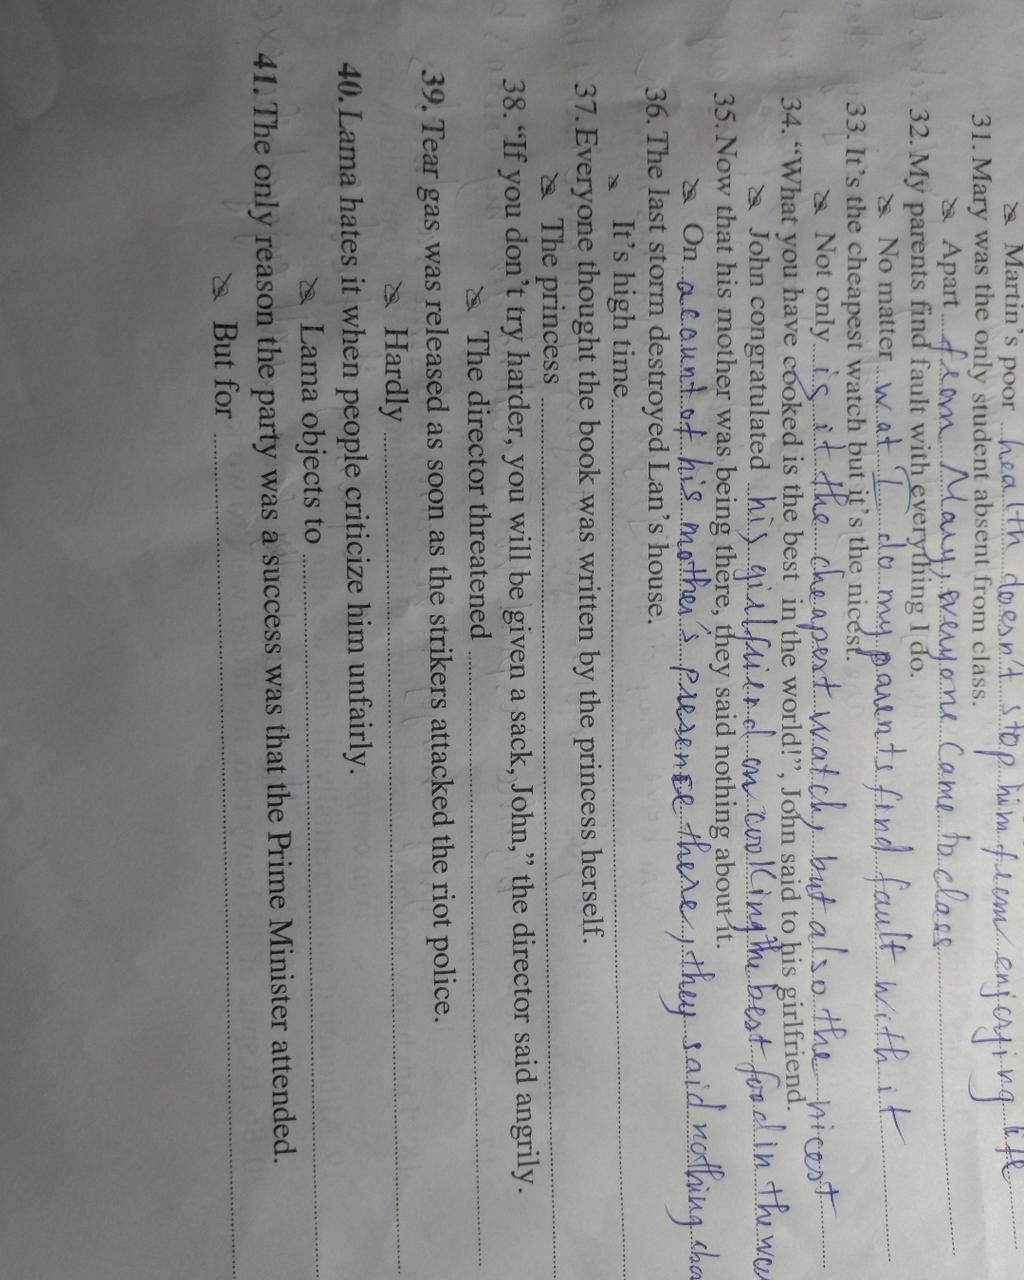 Martin's poor health doesn't stop him from enjoying life
31. Mary was the only student absent from class.
Apart from Mary, everyone came to class
32. My parents find fault with everything I do.
No matter wat I do my parents find fault with it
33. It's the cheapest watch but it's the nicest.
Not only is it the cheapest watch, but also the nicest
34. "What you have cooked is the best in the world!", John said to his girlfriend.
John congratulated his girlfriend on cooking the best food in the
35. Now that his mother was being there, they said nothing about it.
On account of his mother's presence there, they said nothing
36. The last storm destroyed Lan's house.
It's high time
37. Everyone thought the book was written by the princess herself.
The princess
38. "If you don't try harder, you will be given a sack, John," the director said angrily.
The director threatened
39. Tear gas was released as soon as the strikers attacked the riot police.
Hardly
40. Lama hates it when people criticize him unfairly.
Lama objects to
41. The only reason the party was a success was that the Prime Minister attended.
But for